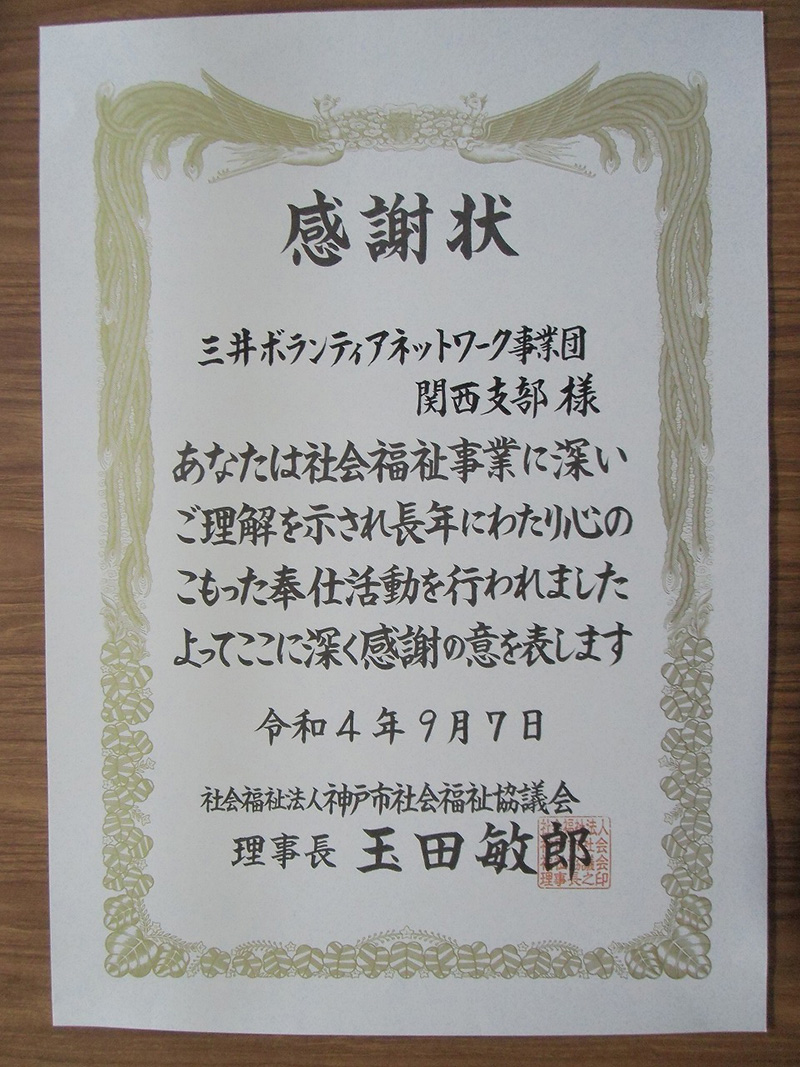 感謝状
三井ボランティアネットワーク事業団
関西支部 様
あなたは社会福祉事業に深い
ご理解を示され長年にわたり心の
こもった奉仕活動を行われました
よってここに深く感謝の意を表します
令和4年9月7日
社会福祉法人神戸市社会福祉協議会
理事長 玉田敏郎